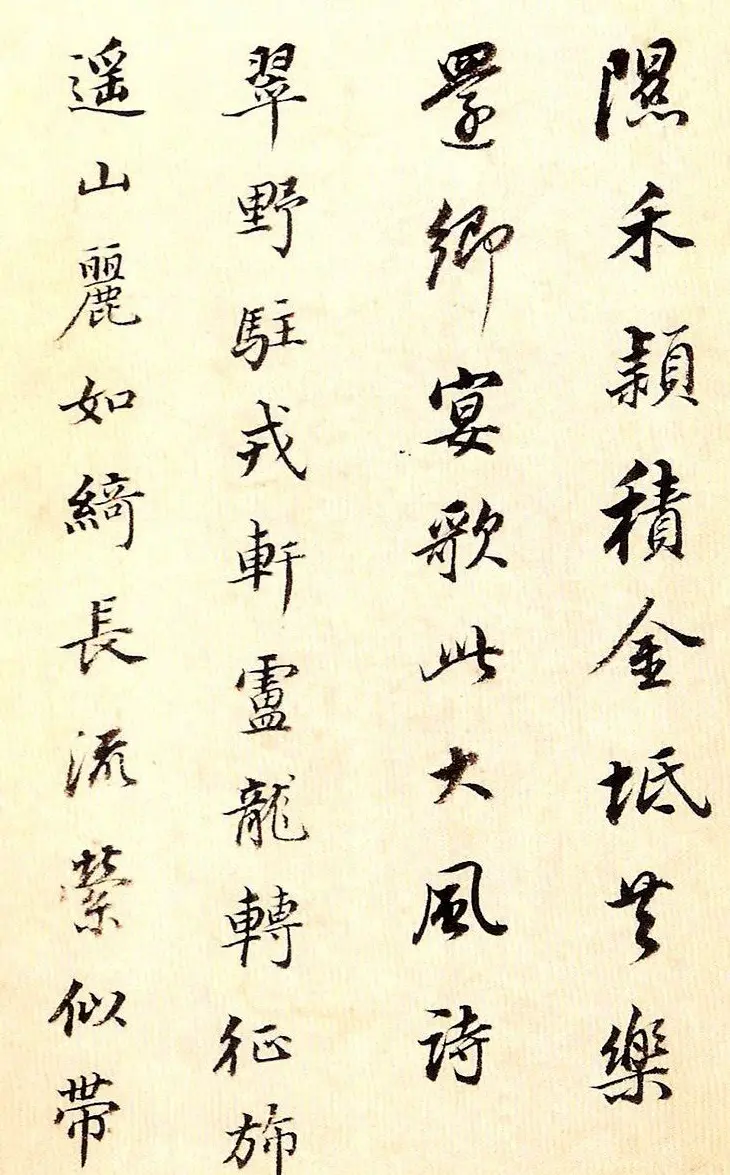 隰禾穎積金坻共樂
還鄉宴歌此大風詩
翠野駐戎軒盧龍轉征旆
遥山麗如綺長流縈似帶